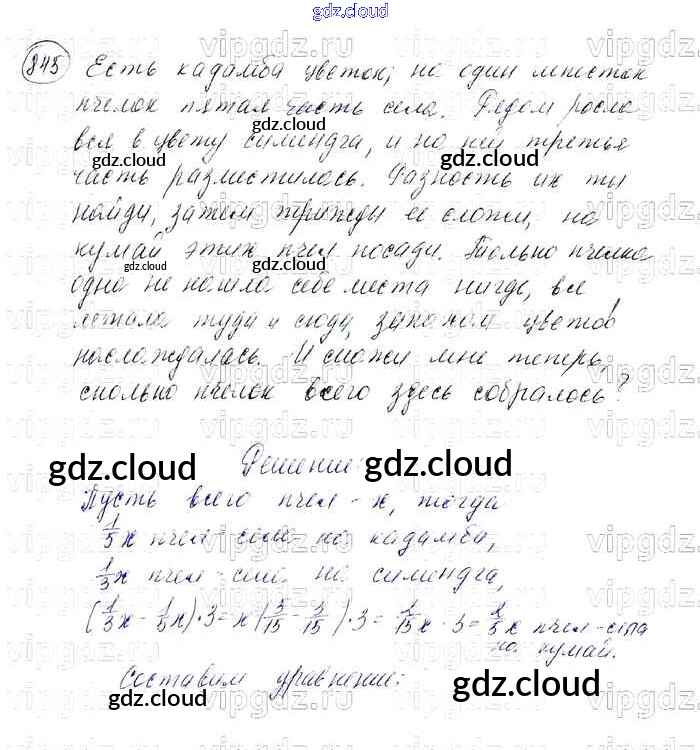 gdz.cloud
845 Есть кадамба цветок; на один лепесток
пчелок пятая часть села. Рядом росла
вся в цвету сименгда, и на ней третья
часть разместилась. Разность их ты
найди, затем трижды ее сложи, на
кумай этих пчел посади. Только пчелка
одна не нашла себе места нигде, все
летала туда и сюда, запахом цветов
наслаждалась. И скажи мне теперь,
сколько пчелок всего здесь собралось?
Решение:
Пусть всего пчел - x, тогда
1/5 x пчел - село на кадамба,
1/3 x пчел - село на сименгда,
(1/3 x - 1/5 x) · 3 = x (5/15 - 3/15) · 3 = 2/15 x · 3 = 2/5 x пчел - села
на кумай.
Составим уравнение: